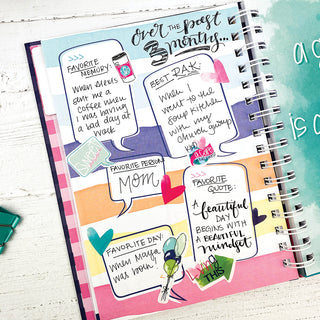 over THE past
3 months...
FAVORITE
MEMORY:
When Alexis
sent me a
coffee when
I was having
a bad day at
work
BEST RAK:
When I
went to the
soup kitchen
with my
church group
FAVORITE PERSON:
MOM
FAVORITE
QUOTE:
A beautiful
DAY
BEGINS
WITH A
BEAUTIFUL
mindset
FAVORITE DAY:
when Maya
was born!
THIS
a
is a